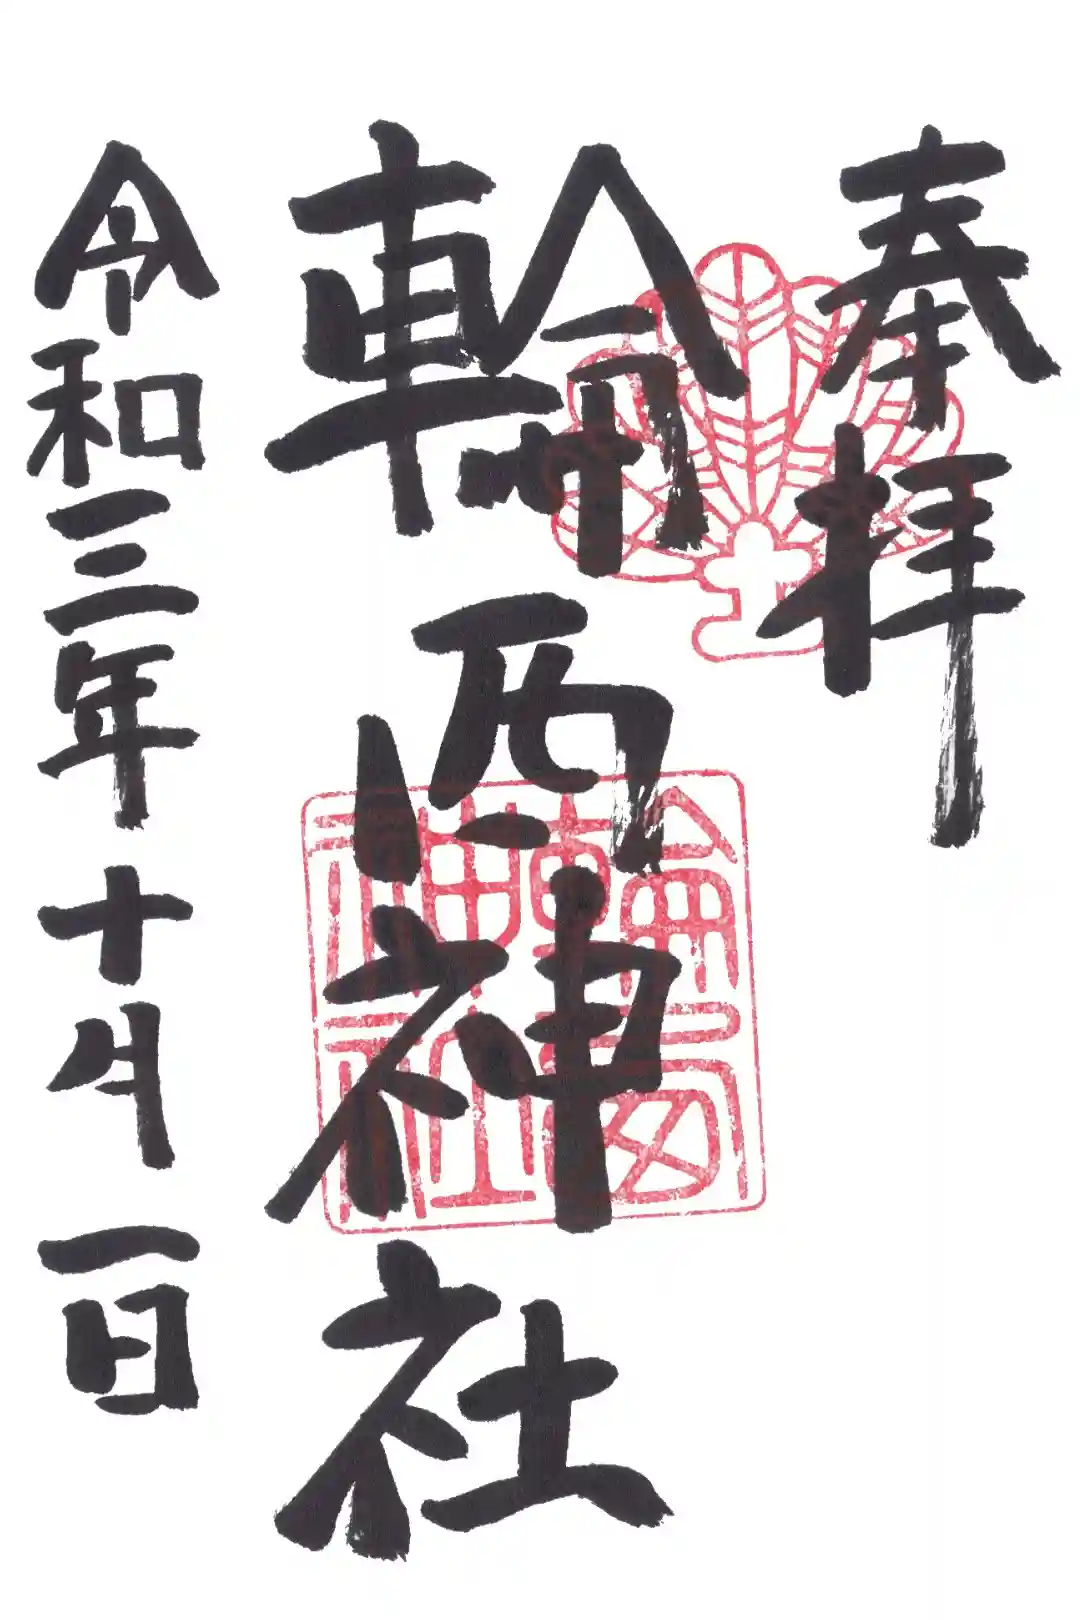 奉拝
輪西神社
令和三年十月一日
輪西
神社